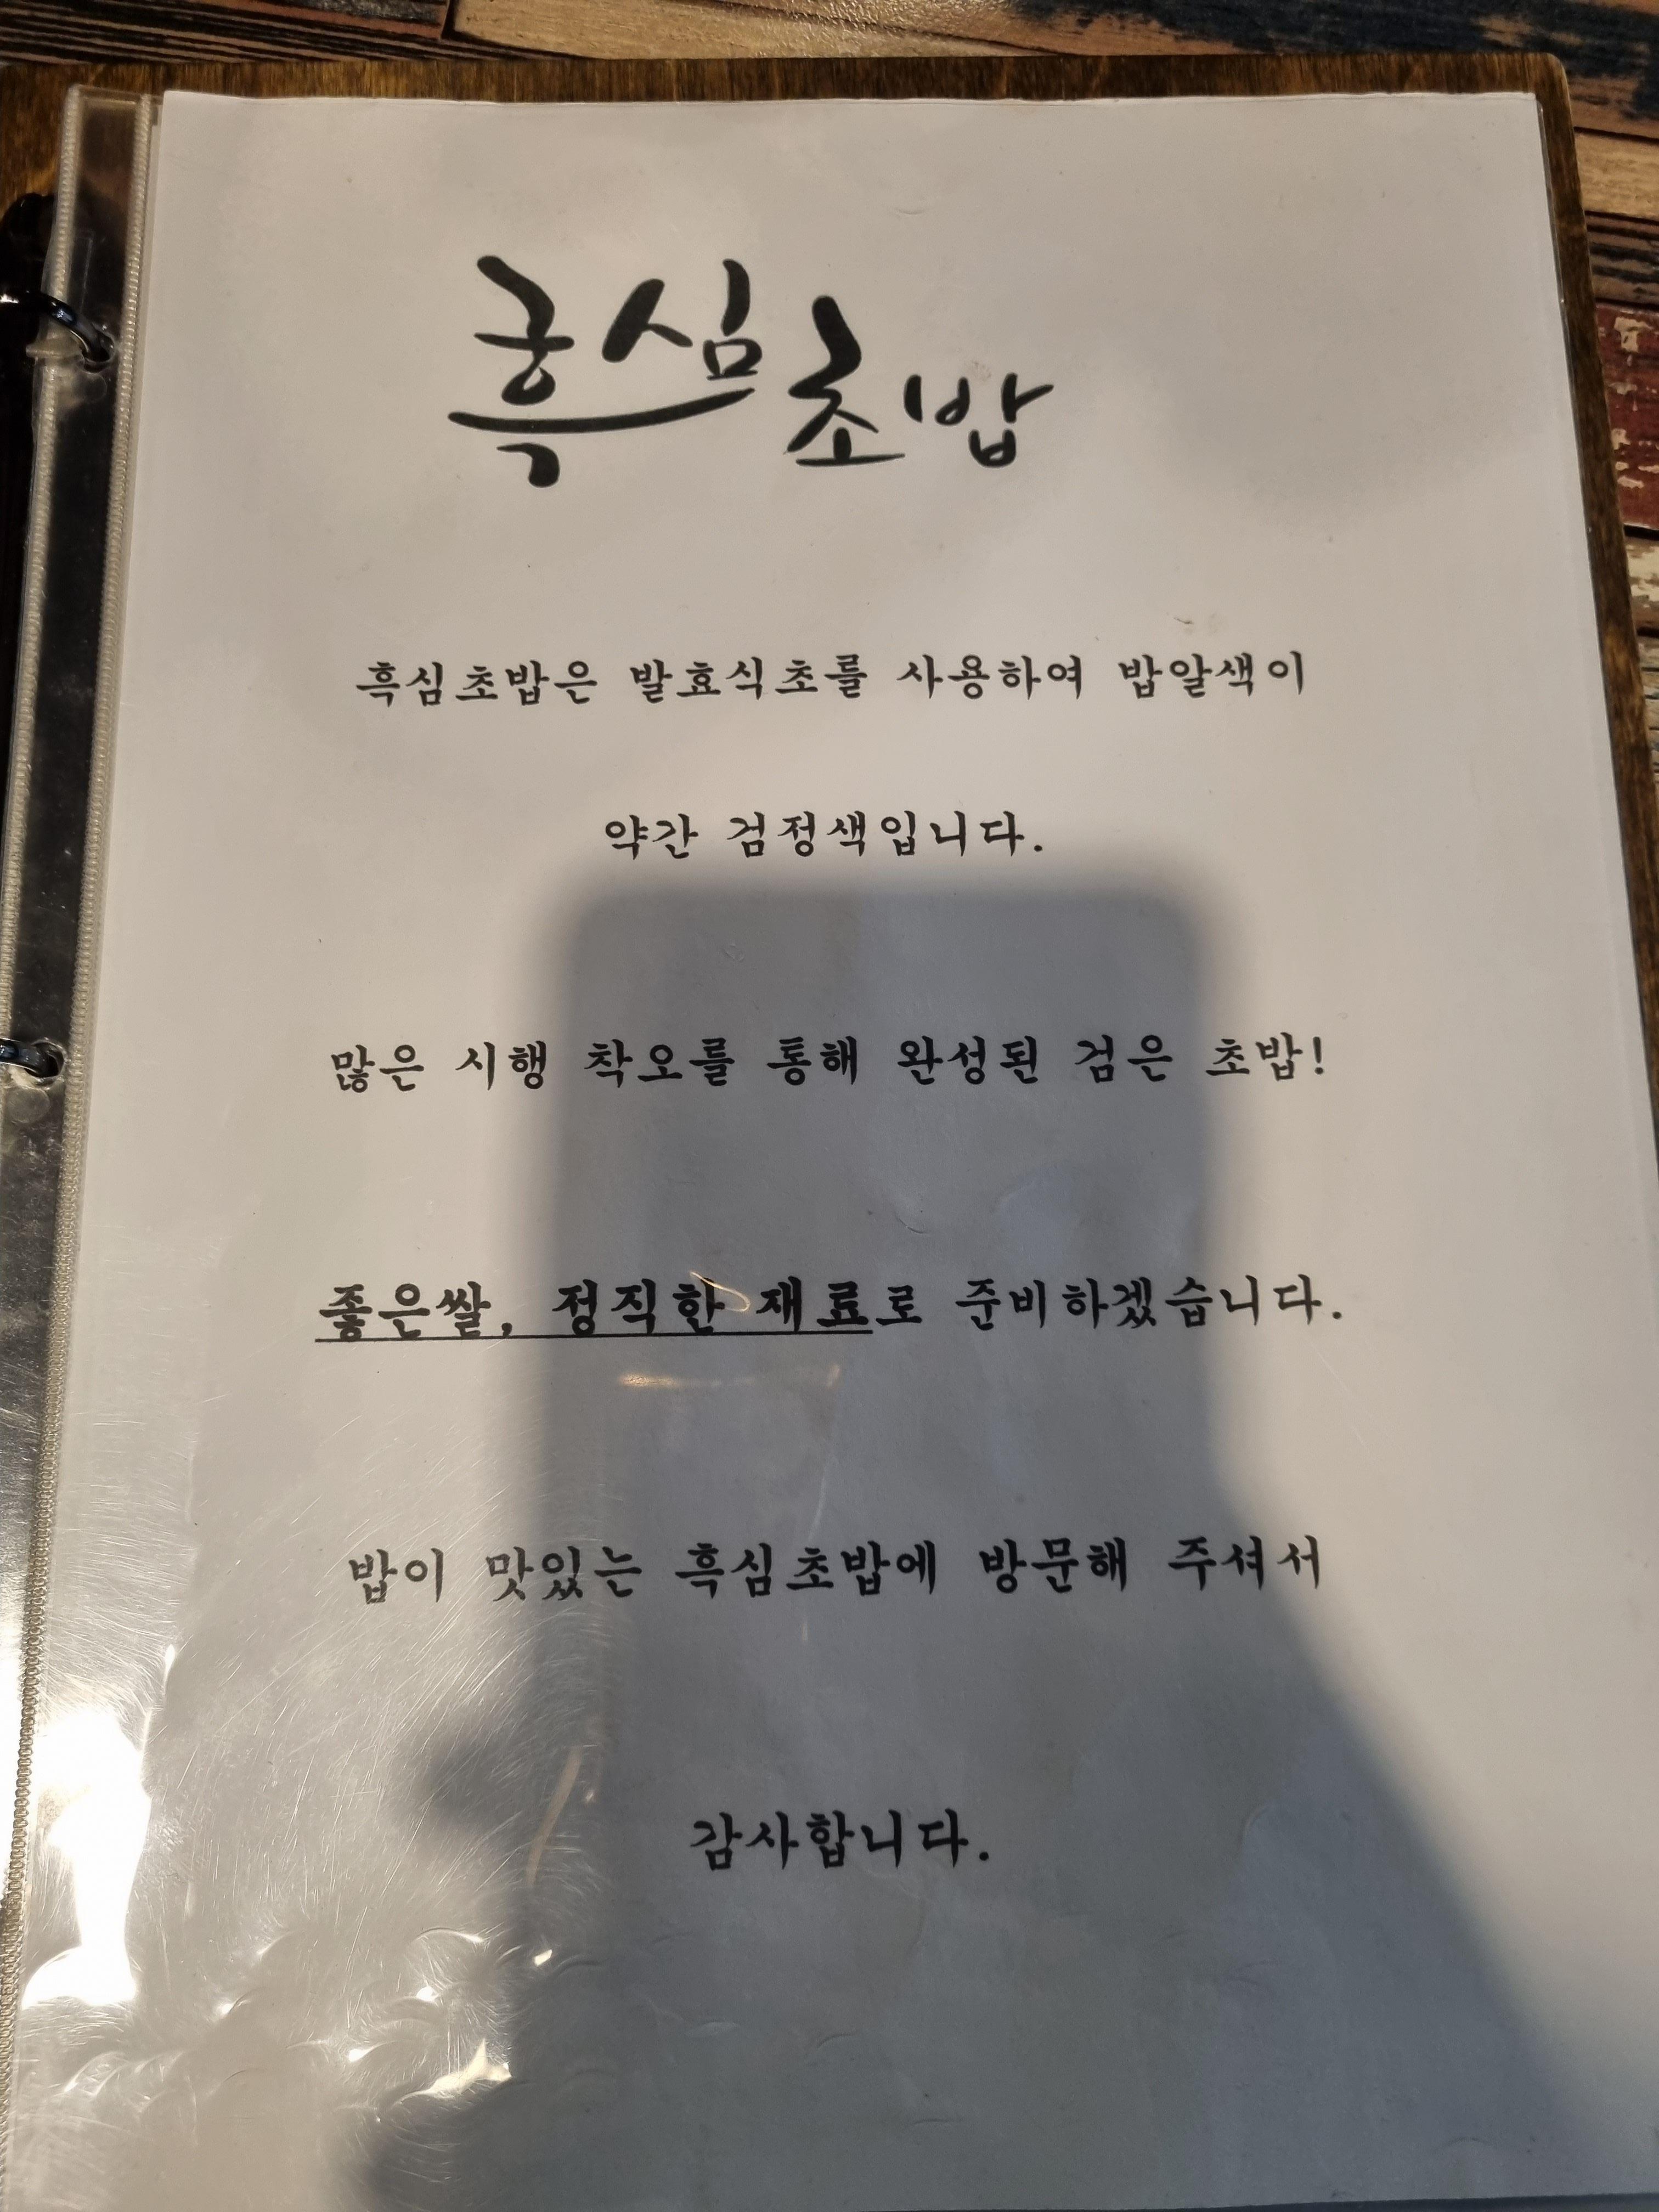 흑심초밥
흑심초밥은 발효식초를 사용하여 밥알색이
약간 검정색입니다.
많은 시행 착오를 통해 완성된 검은 초밥!
좋은쌀, 정직한 재료로 준비하겠습니다.
밥이 맛있는 흑심초밥에 방문해 주셔서
감사합니다.